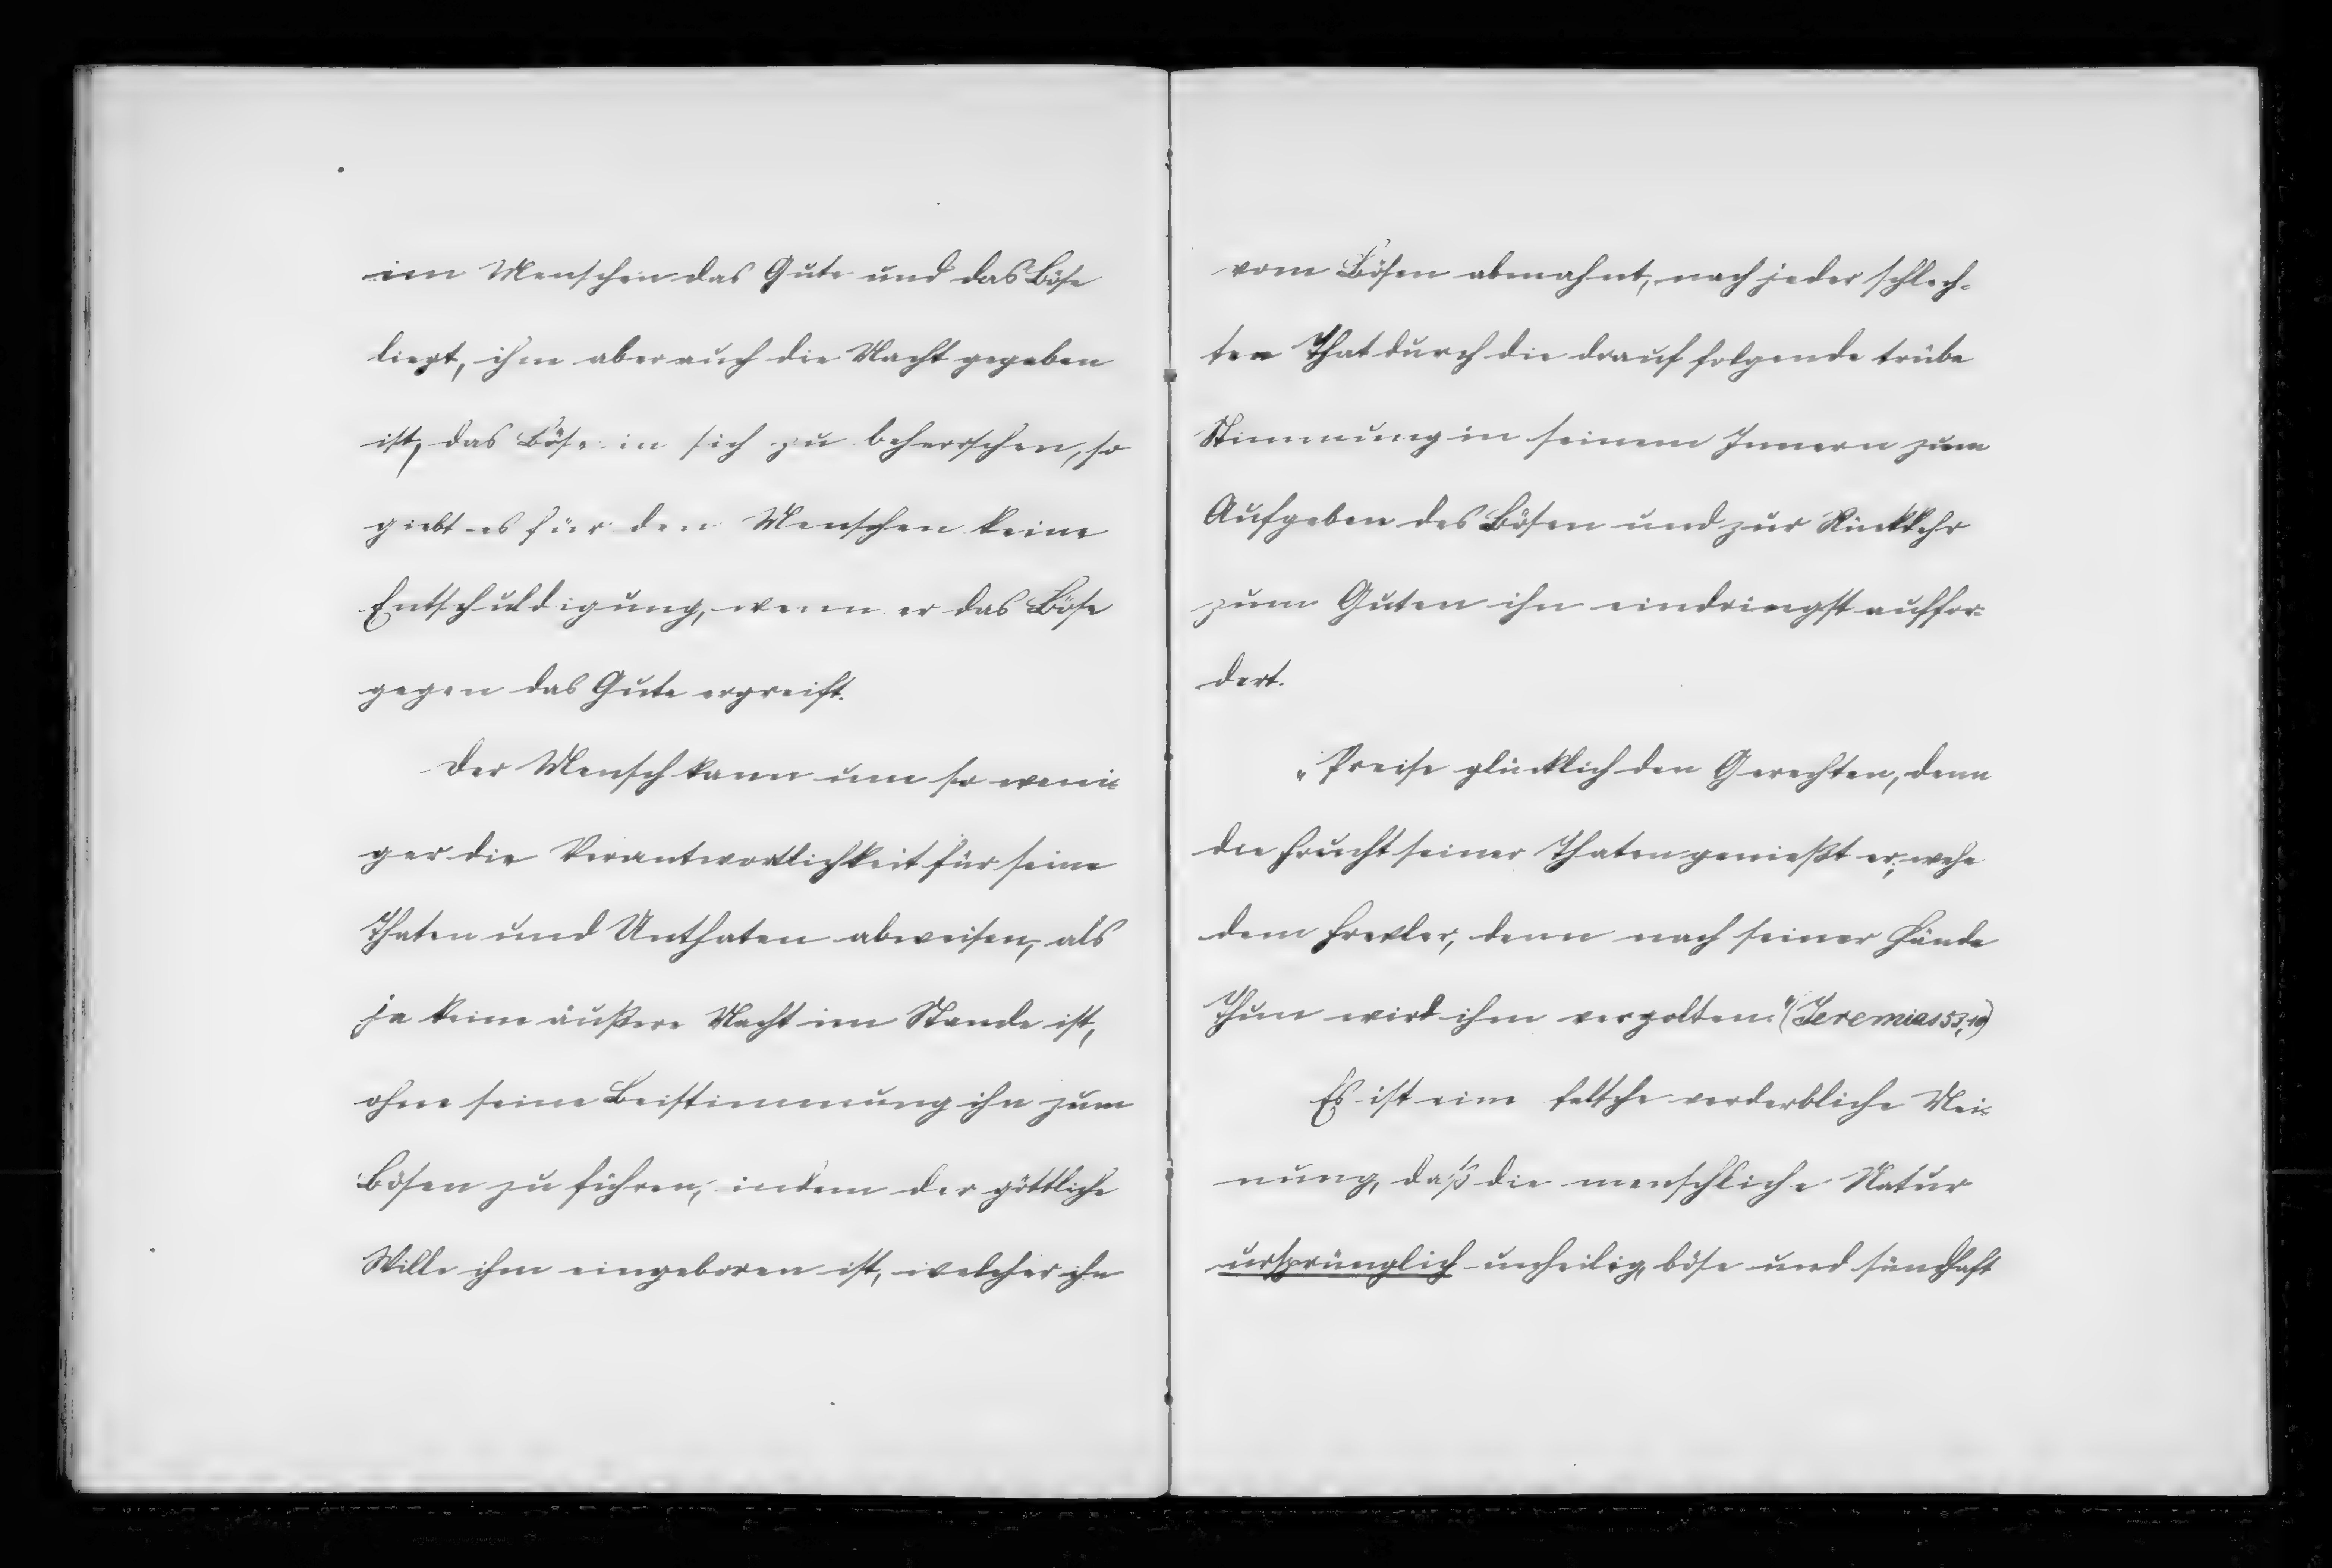 im Menschen das Gute und das Böse
liegt, ihm aber auch die Macht gegeben
ist, das Böse in sich zu beherrschen, so
giebt es für den Menschen keine
Entschuldigung, wenn er das Böse
gegen das Gute ergreift.
Der Mensch kann um so weni=
ger die Verantwortlichkeit für seine
Thaten und Unthaten abweisen, als
ja keine äußere Macht im Stande ist,
ohne seine Beistimmung ihn zum
Bösen zu führen, indem der göttliche
Wille ihm eingeboren ist, welcher ihn
vom Bösen abmahnt, nach jeder schlech=
ten That durch die drauf folgende trübe
Stimmung in seinem Innern zum
Aufgeben des Bösen und zur Rückkehr
zum Guten ihn eindringst auffor=
dert.
„Preise glücklich den Gerechten, denn
die Frucht seiner Thaten genießt er; wehe
dem Frevler, denn nach seiner Hände
Thun wird ihm vergolten." (Jeremias 53, 10)
Es ist eine falsche verderbliche Mei=
nung, daß die menschliche Natur
ursprünglich unheilig, böse und sündhaft